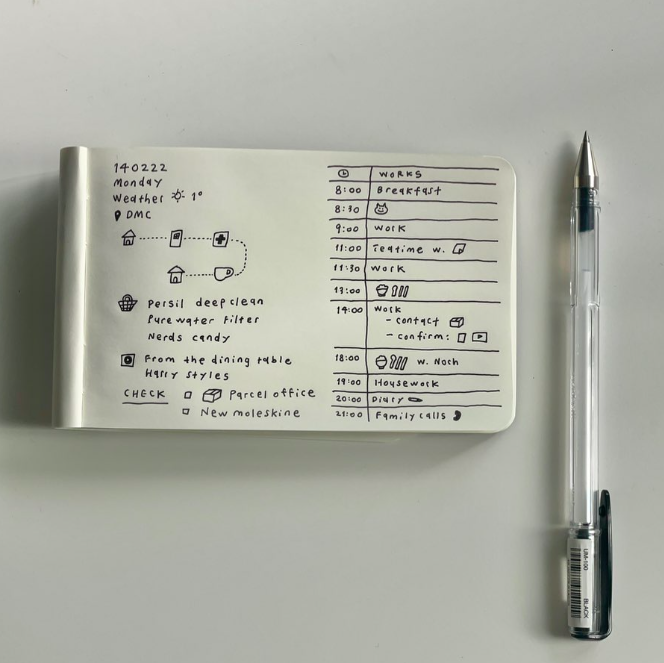 140222
Monday
Weather 1°
DMC
Persil deep clean
Pure water filter
Nerds candy
From the dining table
Harry styles
CHECK
Parcel office
New moleskine
WORKS
8:00 Breakfast
8:30
9:00 work
11:00 Teatime w.
11:30 work
13:00
14:00 work
- contact
- confirm:
18:00 w. Noch
19:00 Housework
20:00 Diary
21:00 Family calls
UM-100 BLACK